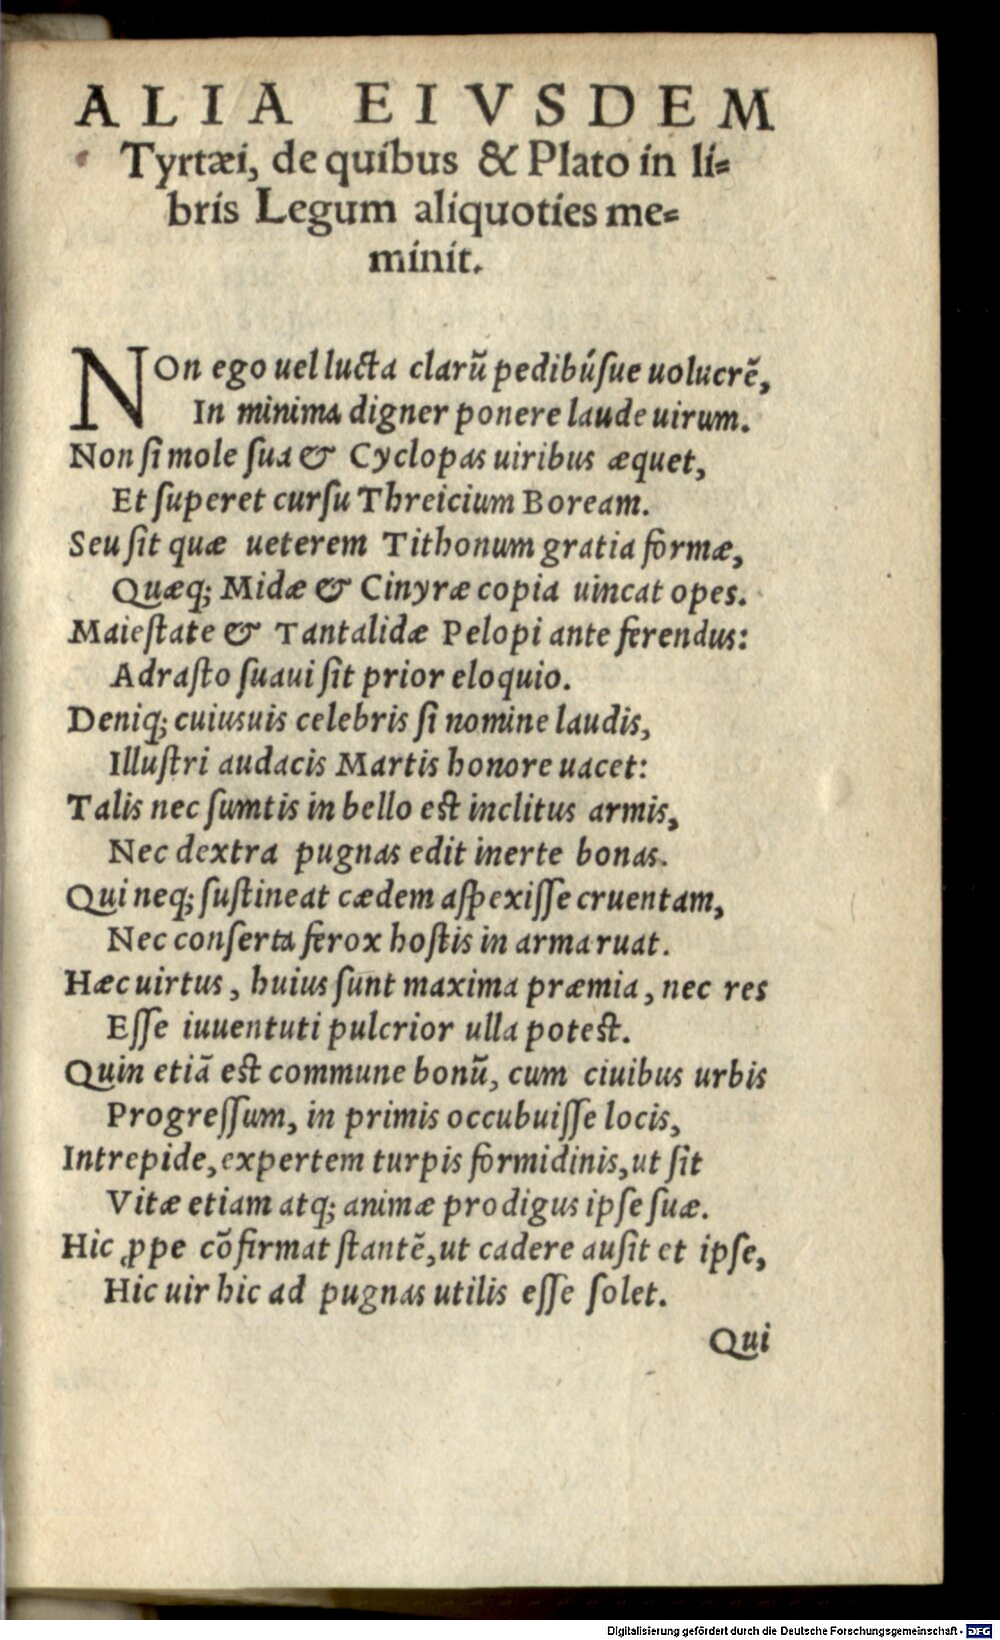 ALIA EIVSDEM
Tyrtæi, de quibus & Plato in li=
bris Legum aliquoties me=
minit.
NOn ego uel lucta clarū pedibúſue uolucrē,
In minima digner ponere laude uirum.
Non ſi mole ſua & Cyclopas uiribus æquet,
Et ſuperet curſu Threicium Boream.
Seu ſit quæ ueterem Tithonum gratia formæ,
Quæq; Midæ & Cinyræ copia uincat opes.
Maieſtate & Tantalidæ Pelopi ante ferendus:
Adraſto ſuaui ſit prior eloquio.
Deniq; cuiusuis celebris ſi nomine laudis,
Illuſtri audacis Martis honore uacet:
Talis nec ſumtis in bello eſt inclitus armis,
Nec dextra pugnas edit inerte bonas.
Qui neq; ſuſtineat cædem aſpexiſſe cruentam,
Nec conſerta ferox hoſtis in arma ruat.
Hæc uirtus, huius ſunt maxima præmia, nec res
Eſſe iuuentuti pulcrior ulla poteſt.
Quin etiā eſt commune bonū, cum ciuibus urbis
Progreſſum, in primis occubuiſſe locis,
Intrepide, expertem turpis formidinis, ut ſit
Vitæ etiam atq; animæ prodigus ipſe ſuæ.
Hic ꝓpe cōfirmat ſtantē, ut cadere auſit et ipſe,
Hic uir hic ad pugnas utilis eſſe ſolet.
Qui
Digitalisierung gefördert durch die Deutsche Forschungsgemeinschaft - DFG